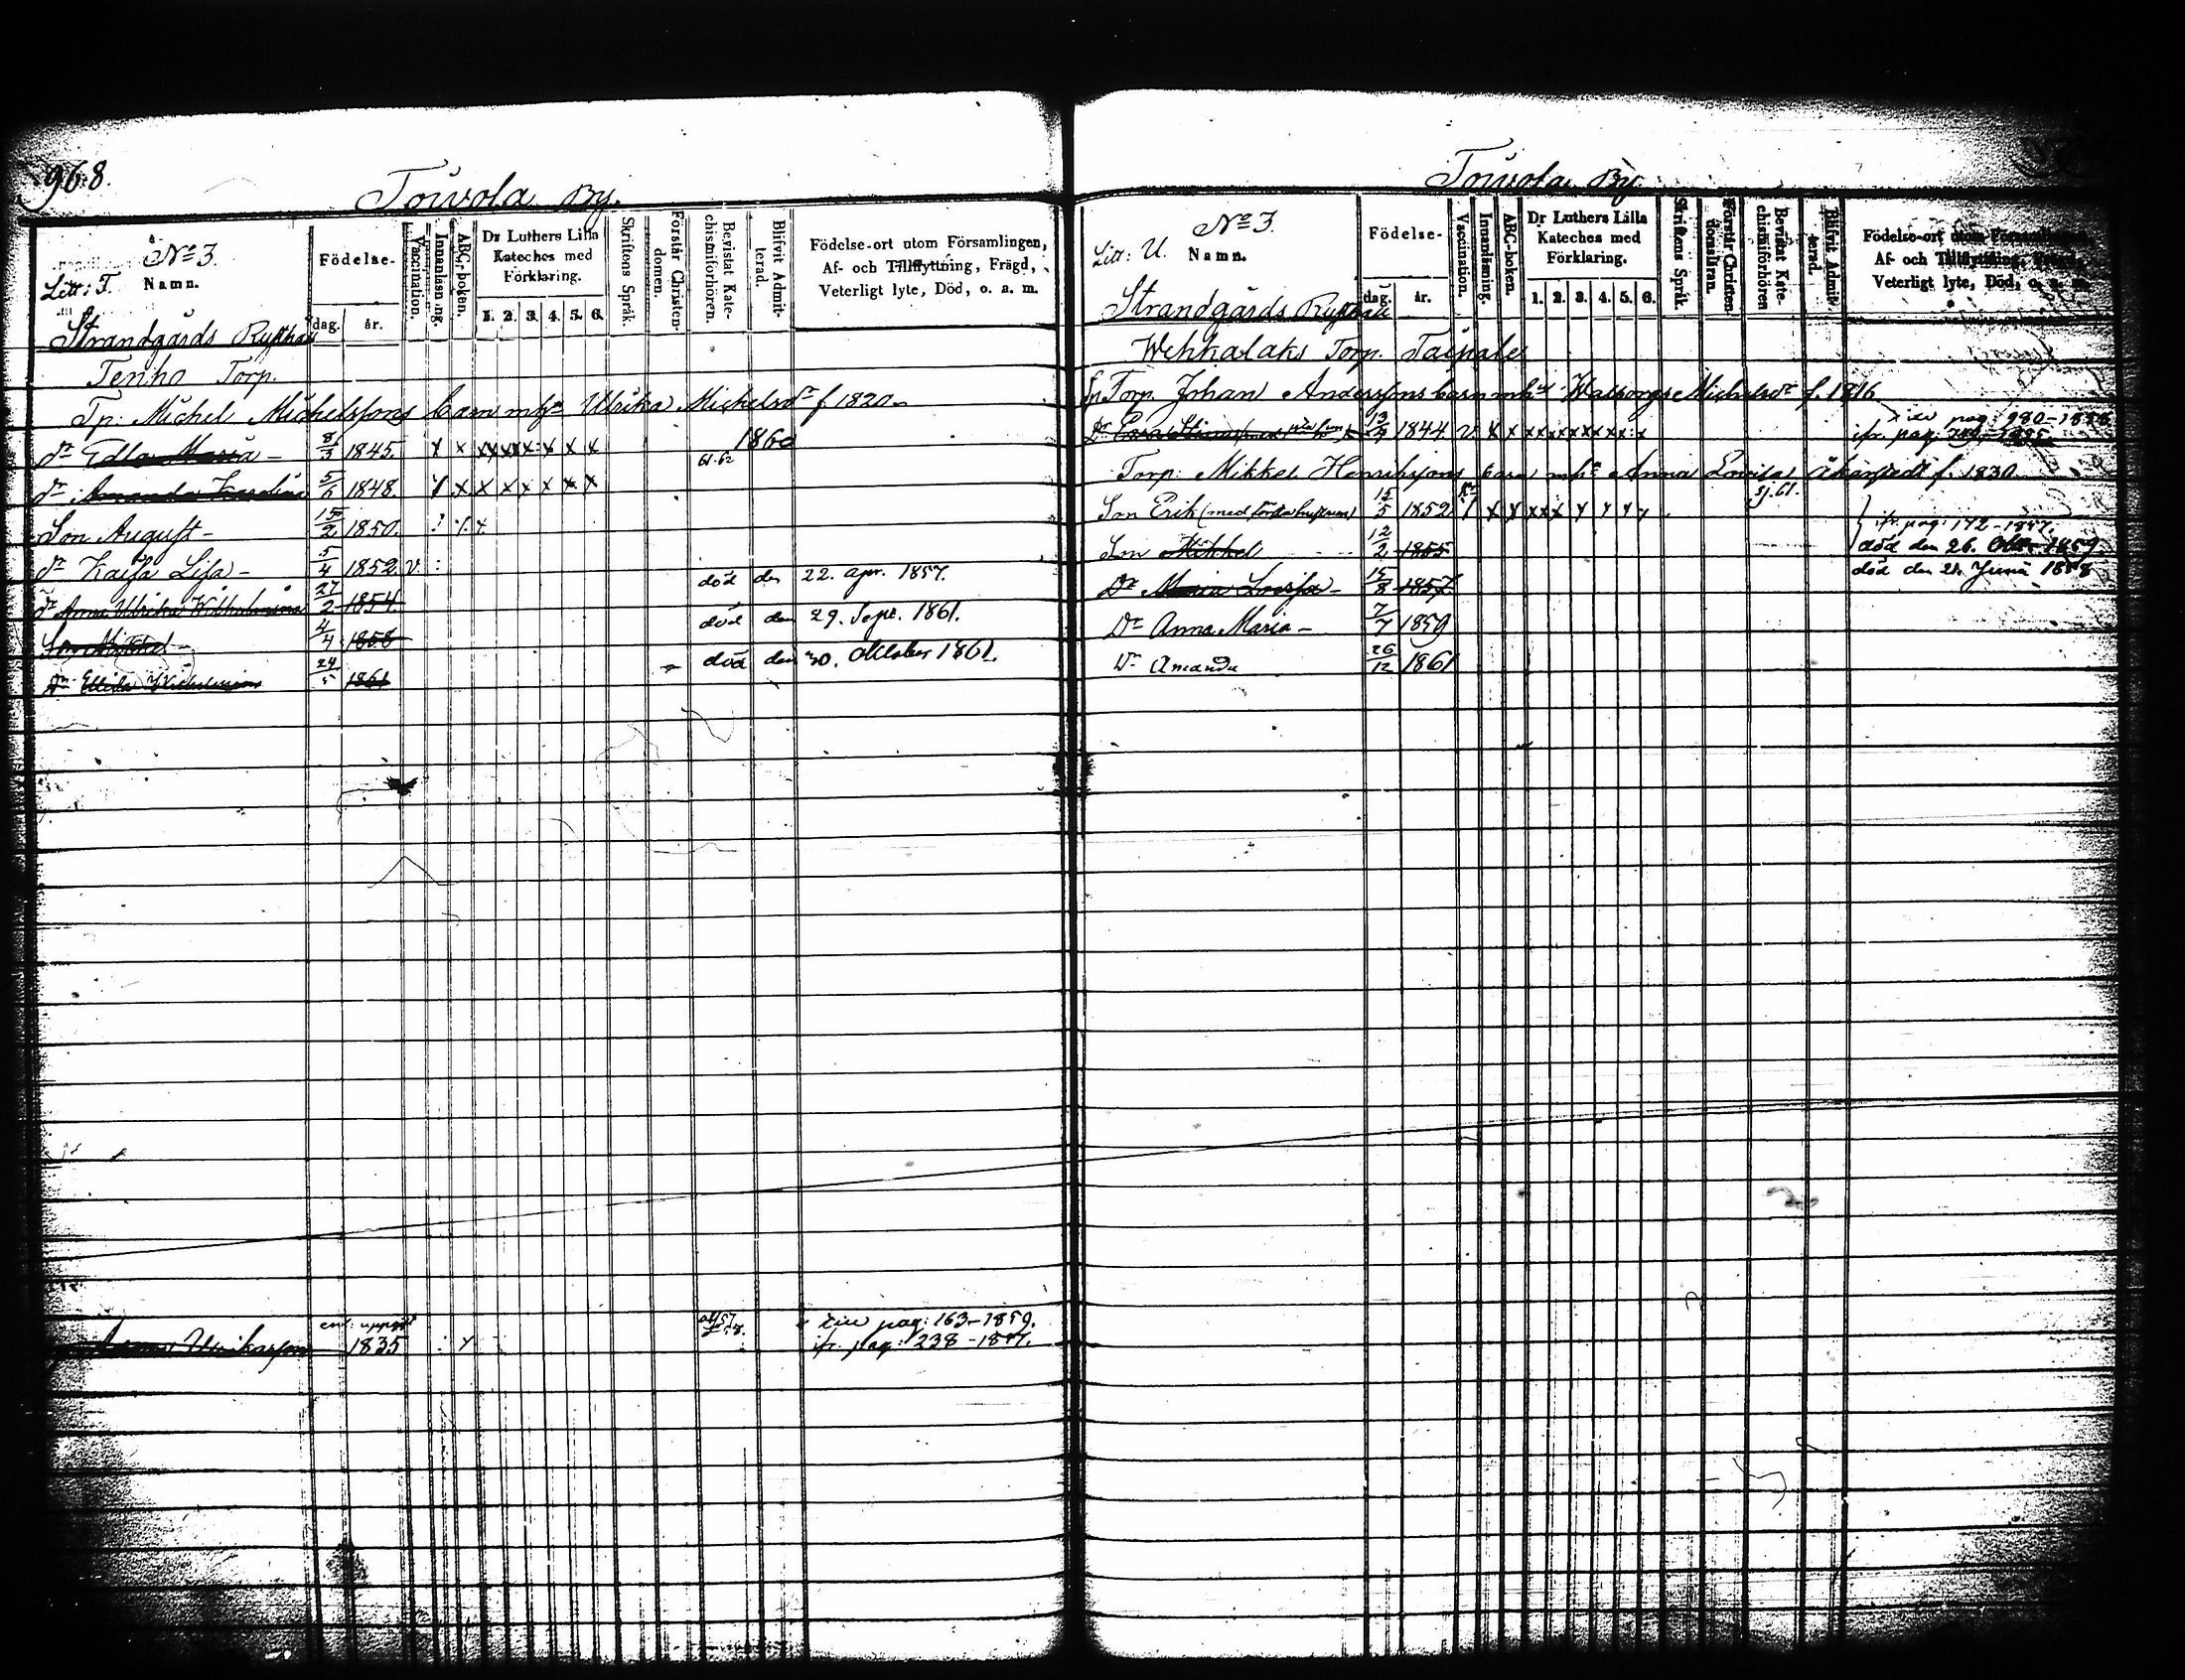 968.
Toivola By.
No 3.
Litt: T. Namn.
Födelse-
dag. år.
Vaccination.
Innanläsning.
ABC-boken.
Dr Luthers Lilla Kateches med Förklaring.
1. 2. 3. 4. 5. 6.
Skriftens Språk.
Förstår Christendomen.
Bevistat Katechismiförhören.
Blifvit Admitterad.
Födelse-ort utom Församlingen,
Af- och Tillflyttning, Frägd,
Veterligt lyte, Död, o. a. m.
Strandgårds
Tenho Torp.
Tp. Michel Michelssons barn Ulrika Michelsdr f 1820
dr Edla Maria - 8/3 1845. x x x x x x x x 1860
61.62
dr Amanda Karolina 5/6 1848. x x x x x x x
Son August - 15/2 1850.
dr Kaisa Lisa - 5/4 1852. v
dr Anna Ulrika Wilhelmina 27/2 1854 död den 22. apr. 1857.
Son Mikkel 4/4 1858 död den 29. Sept. 1861.
Dr 24/5 1861 död den 30. oktober 1861.
1835
pag: 163-1859.
ifr. pag: 238-1857.
Toivola By
No 3.
Litt: U. Namn.
Födelse-
dag. år.
Vaccination.
Innanläsning.
ABC-boken.
Dr Luthers Lilla Kateches med Förklaring.
1. 2. 3. 4. 5. 6.
Skriftens Språk.
Förstår Christendomsläran.
Bevistat Katechismiförhören
Blifvit Admitterad.
Födelse-ort utom Församlingen,
Af- och Tillflyttning, Frägd,
Veterligt lyte, Död, o. a. m.
Strandgårds
Wehkalaks Torp. Taipale
Torp. Johan Anderssons barn Michelsdr f. 1816
pag: 980-1856
Dr 1844 v x x x x x x x x
ifr. pag.
Torp. Mikkel Henrikssons barn Anna Lovisa f. 1830
Son Erik 15/5 1852
ifr. pag: 172-1857.
Son Mikkel 12/2 1855 död den 26. 1859.
Dr Maria Lovisa - 15/8 1857 död den 21. Juni 1858
Dr Anna Maria - 7/7 1859
Dr Amanda 26/12 1861